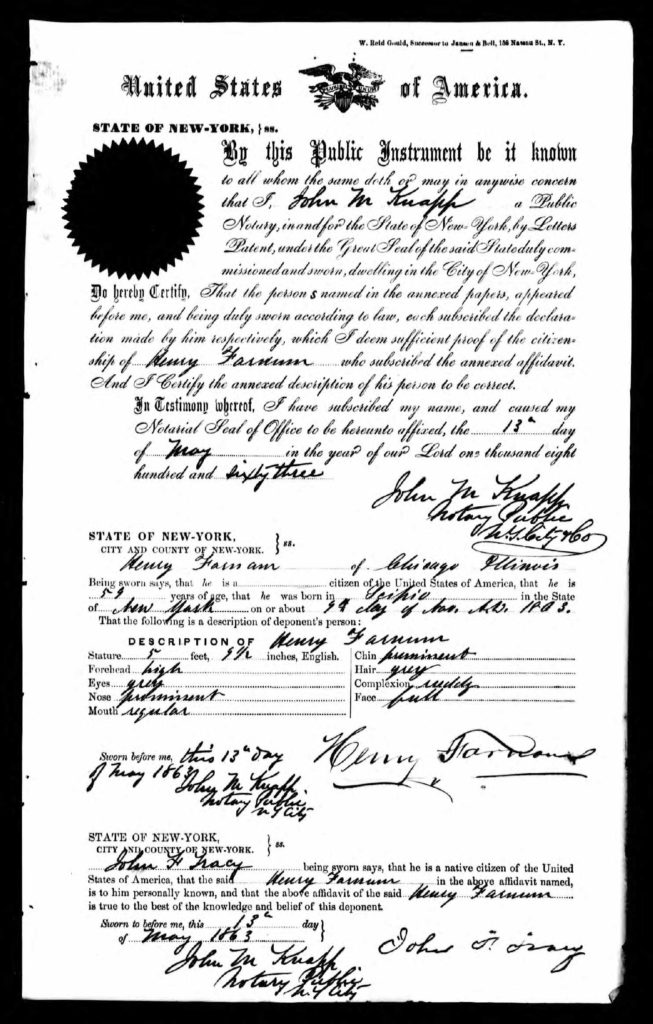 W. Reid Gould, Successor to Jansen & Bell, 158 Nassau St., N. Y.
United States of America.
STATE OF NEW-YORK, } ss.
By this Public Instrument be it known
to all whom the same doth or may in anywise concern
that I, John M Knapp a Public
Notary, in and for the State of New-York, by Letters
Patent, under the Great Seal of the said State duly com-
missioned and sworn, dwelling in the City of New-York,
Do hereby Certify, That the persons named in the annexed papers, appeared
before me, and being duly sworn according to law, each subscribed the declara-
tion made by him respectively, which I deem sufficient proof of the citizen-
ship of Henry Farnum who subscribed the annexed affidavit.
And I Certify the annexed description of his person to be correct.
In Testimony whereof, I have subscribed my name, and caused my
Notarial Seal of Office to be hereunto affixed, the 13th day
of May in the year of our Lord one thousand eight
hundred and sixty three
John M Knapp
Notary Public
N.Y. City & Co
STATE OF NEW-YORK,
CITY AND COUNTY OF NEW-YORK. } ss.
Henry Farnam of Chicago Illinois
Being sworn says, that he is a citizen of the United States of America, that he is
59 years of age, that he was born in Scipio in the State
of New York on or about 9th day of Nov. A.D. 1803.
That the following is a description of deponent's person:
DESCRIPTION OF Henry Farnum
Stature 5 feet, 9 1/2 inches, English.
Forehead high
Eyes grey
Nose prominent
Mouth regular
Chin prominent
Hair grey
Complexion ruddy
Face full
Sworn before me, this 13th day
of May 1863
John M Knapp
Notary Public
N.Y City
Henry Farnam
STATE OF NEW-YORK,
CITY AND COUNTY OF NEW-YORK. } ss.
John F Tracy being sworn says, that he is a native citizen of the United
States of America, that the said Henry Farnum in the above affidavit named,
is to him personally known, and that the above affidavit of the said Henry Farnum
is true to the best of the knowledge and belief of this deponent.
Sworn to before me, this 13th day
of May 1863
John F. Tracy
John M Knapp
Notary Public
N.Y City